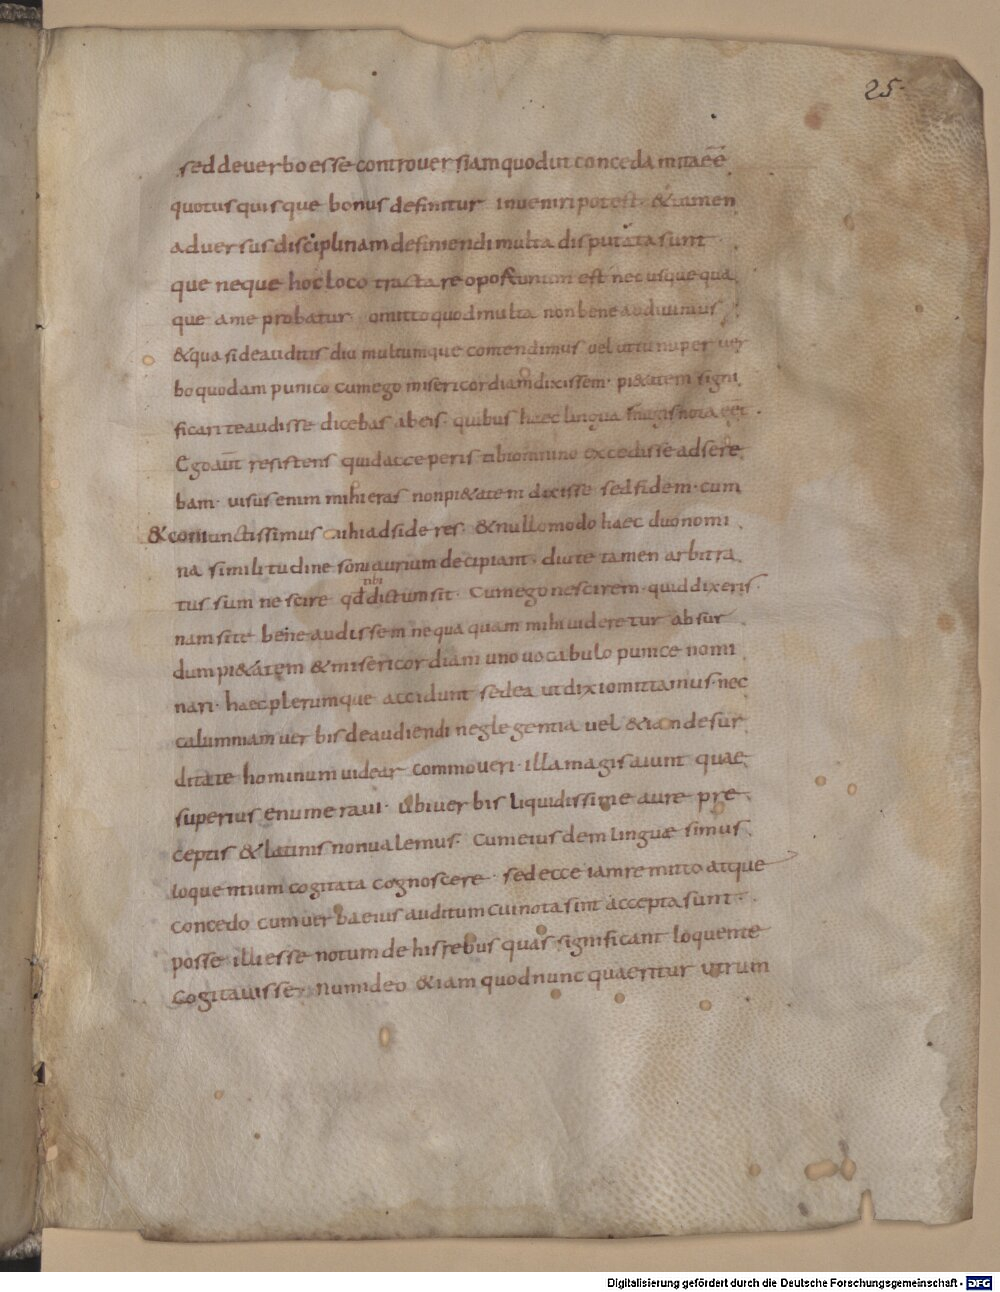 25.
sed de uerbo esse controuersiam quod ut concedam ita eē
quotusquisque bonus definitur inueniri potest. & tamen
aduersus disciplinam definiendi multa disputata sunt
que neque hoc loco tractare oportunum est nec usque qua
que a me probatur. omitto quod multa non bene audiuimus
& quasi de auditis diu multumque contendimus uel ut tu nuper uer
bo quodam punico cum ego misericordiam dixissem. pi&atem signi
ficari te audisse dicebas ab eis. quibus haec lingua magis nota eēt.
Ego aut̄ resistens quid acceperis tibi omnino excedisse adsere
bam. uisus enim mihi eras non pi&atem dixisse sed fidem. cum
& coniunctissimus mihi adsideres. & nullo modo haec duo nomi
na similitudine soni aurium decipiant. diu te tamen arbitra
tus sum nescire qd̄ tibi dictum sit. Cum ego nescirem. quid dixeris.
nam si te bene audissem nequaquam mihi uideretur absur
dum pi&atem & misericordiam uno uocabulo punice nomi
nari. haec plerumque accidunt sed ea ut dixi omittamus. nec
calumniam uerbis de audiendi neglegentia uel &iam de sur
ditate hominum uidear commoueri. illa magis aiunt quae
superius enumeraui. ubi uerbis liquidissime aure pre
ceptis & latinis non ualemus. Cum eiusdem linguae simus
loquentium cogitata cognoscere. sed ecce iam remitto atque
concedo cum uerba eius auditum cui nota sint accepta sunt.
posse illi esse notum de his rebus quas significant loquente
cogitauisse. num ideo &iam quod nunc quaeritur utrum
Digitalisierung gefördert durch die Deutsche Forschungsgemeinschaft - DFG